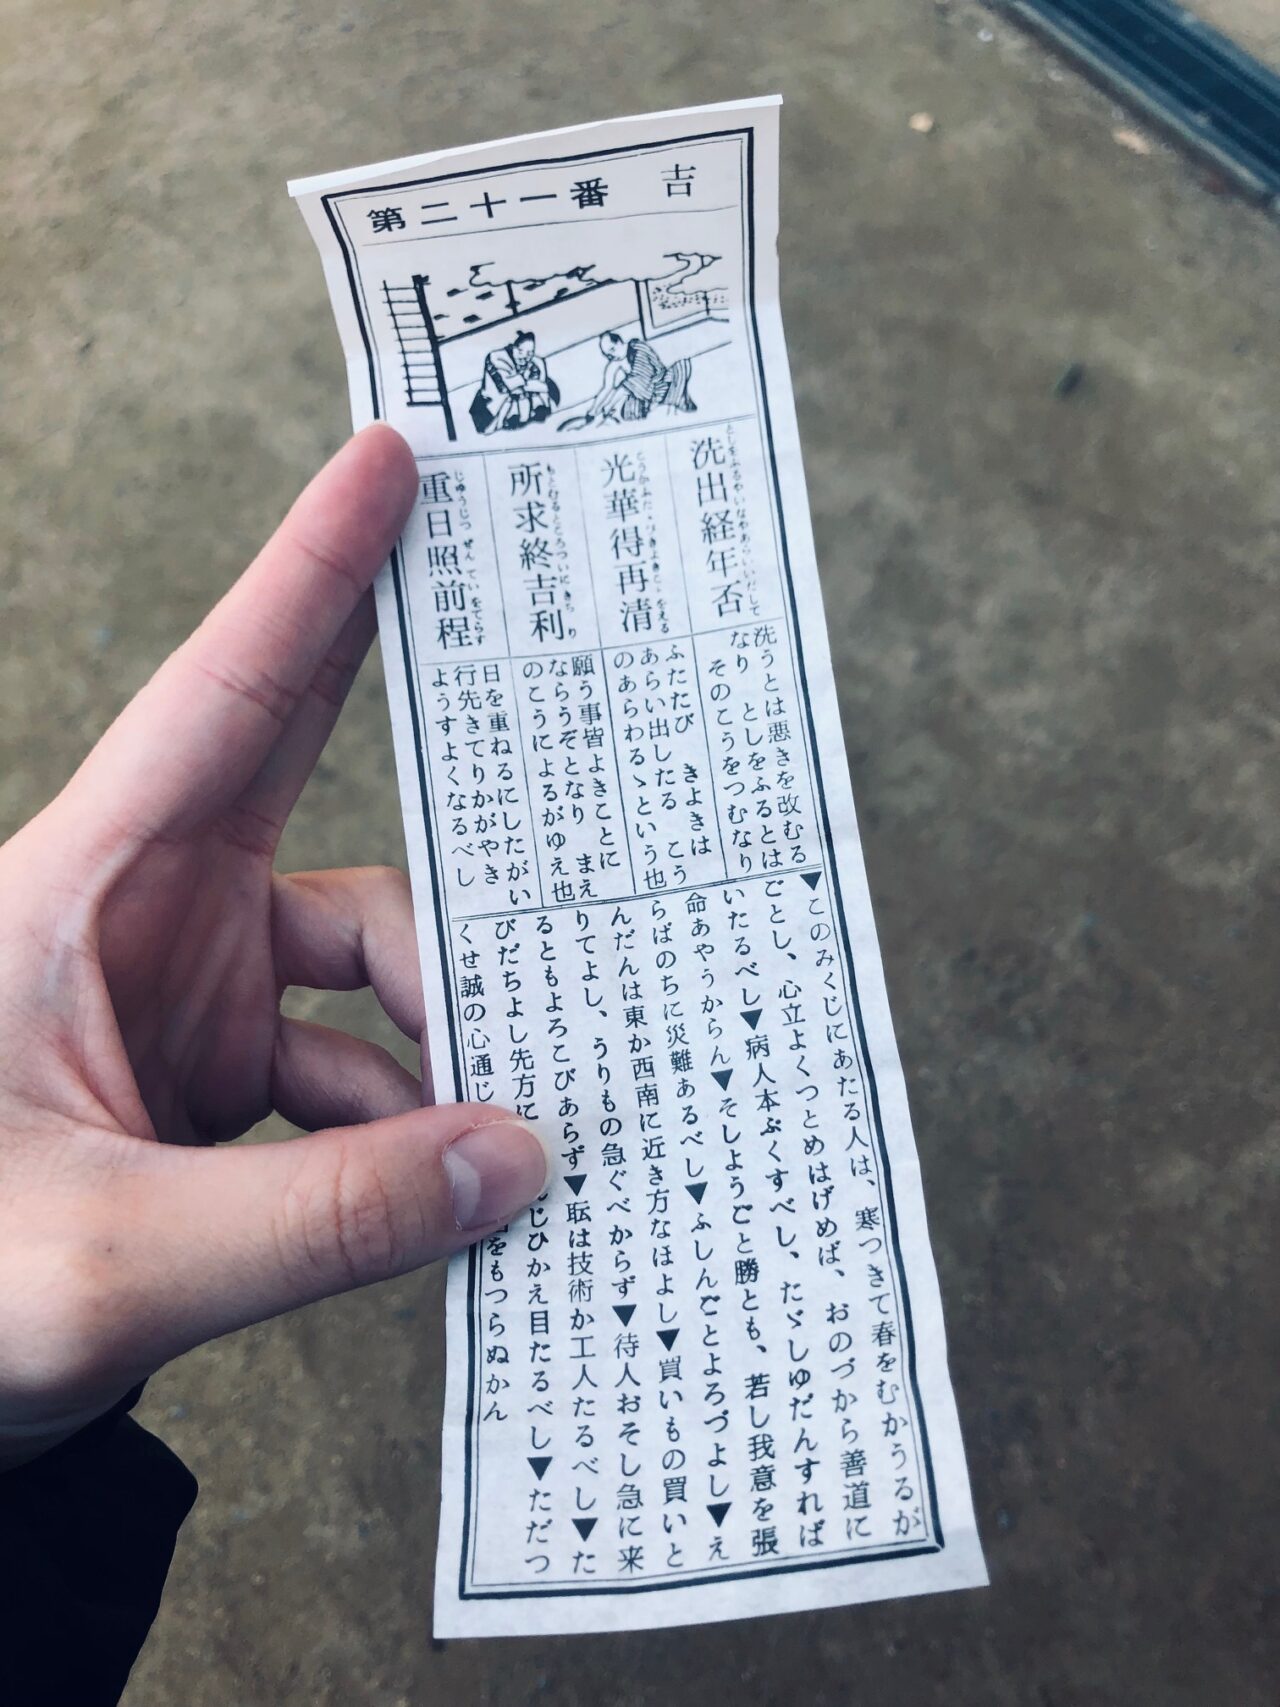 第二十一番 吉
洗出経年否
としをふるやいなやあらいいだして
光華得再清
所求終吉利
もとむるところついにきちり
重日照前程
じゅうじつぜんていをてらす
洗うとは悪きを改むる
なり としをふるとは
そのこうをつむなり
ふたたび きよきは
あらい出したる こう
のあらわるゝという也
願う事皆よきことに
ならうぞとなり まえ
のこうによるがゆえ也
日を重ねるにしたがい
行先きてりかがやき
ようすよくなるべし
▼このみくじにあたる人は、寒つきて春をむかうるが
ごとし、心立よくつとめはげめば、おのづから善道に
いたるべし▼病人本ぷくすべし、たゞしゆだんすれば
命あやうからん▼そしようごと勝とも、若し我意を張
らばのちに災難あるべし▼ふしんごとよろづよし▼え
んだんは東か西南に近き方なほよし▼買いもの買いと
りてよし、うりもの急ぐべからず▼待人おそし急に来
るともよろこびあらず▼耘は技術か工人たるべし▼た
びだちよし先方に んじひかえ目たるべし▼ただつ
くせ誠の心通じ をもつらぬかん